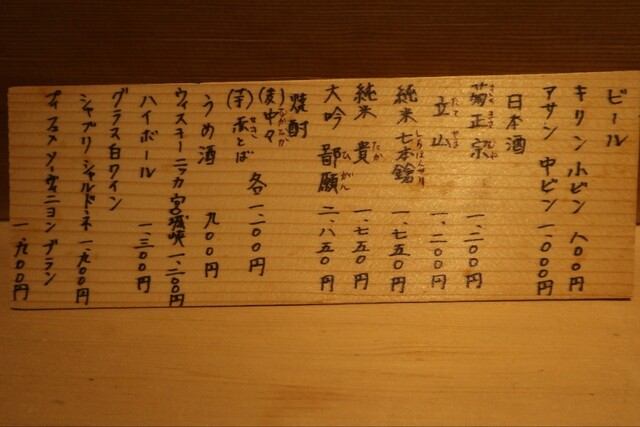 ビール
キリン 小ビン 八〇〇円
アサヒ 中ビン 一、〇〇〇円
日本酒
菊正宗 一、二〇〇円
立山 たて やま 一、二〇〇円
純米 七本鎗 一、七五〇円
純米 貴 たか 一、七五〇円
大吟 一、八五〇円
焼酎
(麦)中々 なかなか
(芋)赤とば 各 一、二〇〇円
うめ酒 九〇〇円
ウィスキー ニッカ 宮城峡 一、二〇〇円
ハイボール 一、三〇〇円
グラス白ワイン
シャブリ シャルドネ 一、九〇〇円
ソーヴィニヨン ブラン
一、九〇〇円